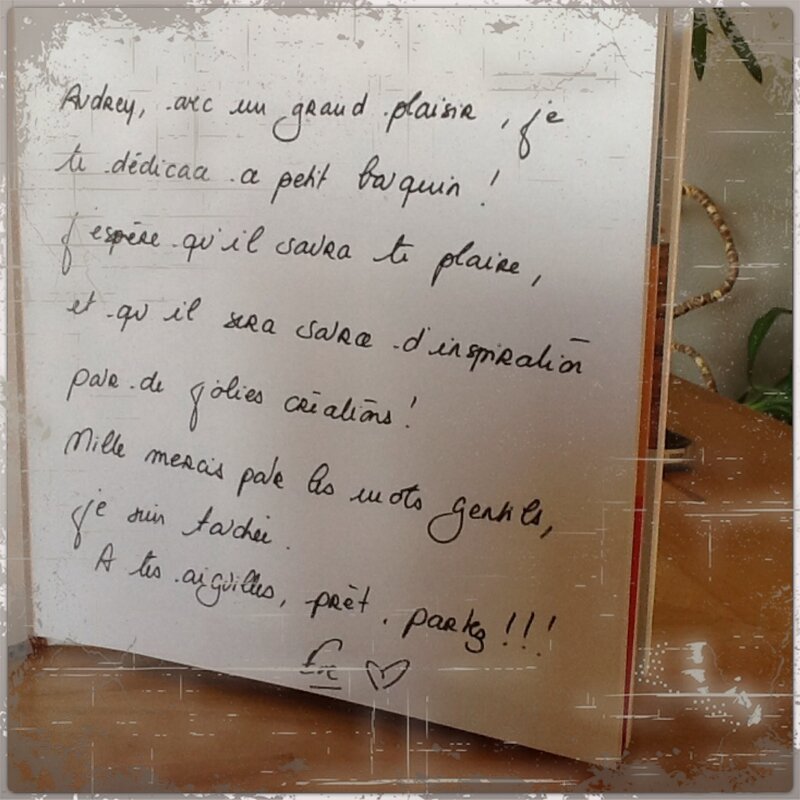 Audrey, avec un grand plaisir, je
te dédicace ce petit bouquin !
J'espère qu'il saura te plaire,
et qu'il sera source d'inspiration
pour de jolies créations !
Mille mercis pour les mots gentils,
je suis touchée.
A tes aiguilles, prêt, partez !!!